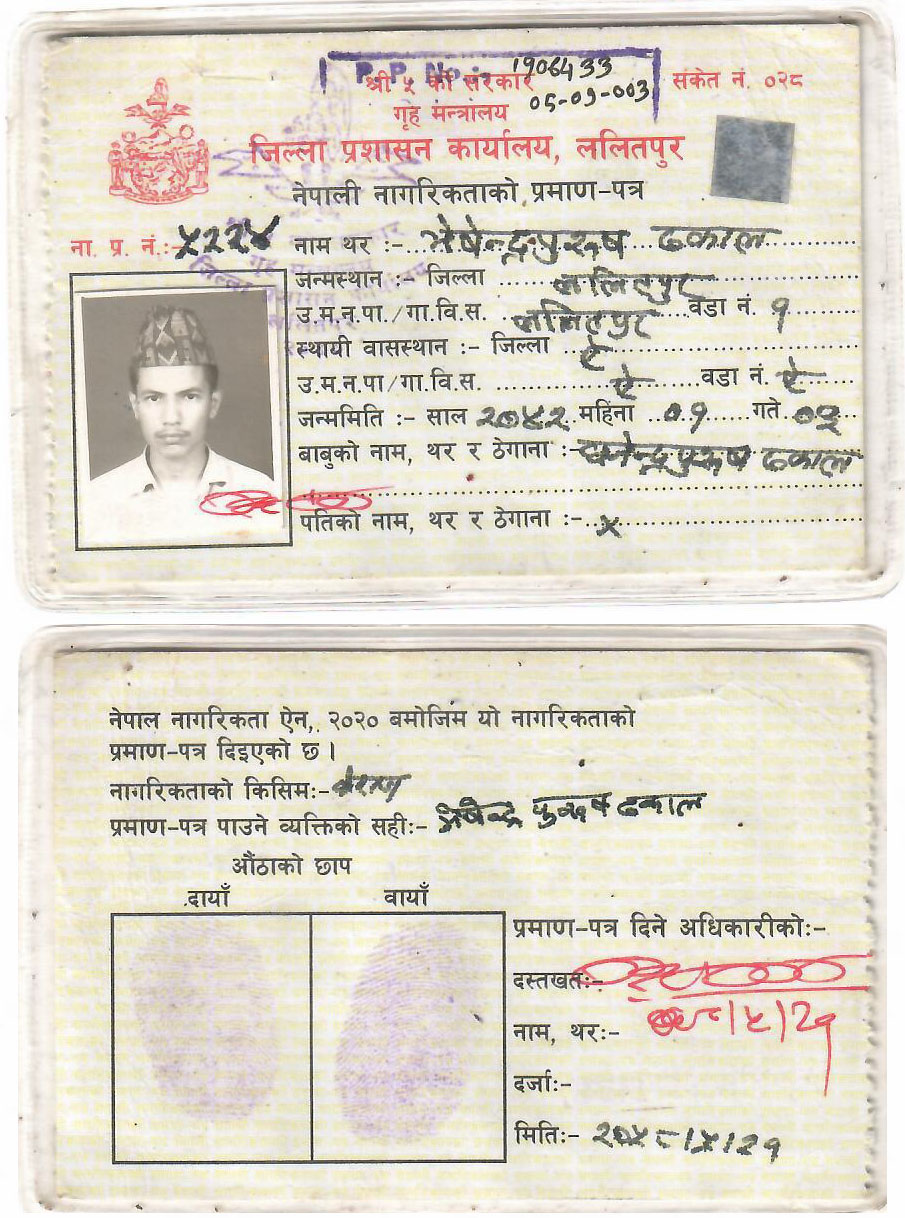 P. P. No :- 1906433
श्री ५ को सरकार
संकेत नं. ०२८
गृह मन्त्रालय
05-09-003
जिल्ला प्रशासन कार्यालय, ललितपुर
नेपाली नागरिकताको प्रमाण-पत्र
ना. प्र. नं.:- ५२२४
नाम थर :- भेषेन्द्रपुरूष ढकाल
जन्मस्थान :- जिल्ला ललितपुर
उ.म.न.पा./गा.वि.स. ललितपुर वडा नं. १
स्थायी वासस्थान :- जिल्ला ऐ
उ.म.न.पा/गा.वि.स. ऐ वडा नं. ऐ
जन्ममिति :- साल २०४२ महिना ०१ गते
बाबुको नाम, थर र ठेगाना :- पुरूष ढकाल
पतिको नाम, थर र ठेगाना :- x
नेपाल नागरिकता ऐन, २०२० बमोजिम यो नागरिकताको
प्रमाण-पत्र दिइएको छ ।
नागरिकताको किसिम:- वंशज
प्रमाण-पत्र पाउने व्यक्तिको सही:- भेषेन्द्र पुरूष ढकाल
औंठाको छाप
दायाँ वायाँ
प्रमाण-पत्र दिने अधिकारीको:-
दस्तखत:-
नाम, थर:-
दर्जा:-
मिति:- २०५८।५।२१